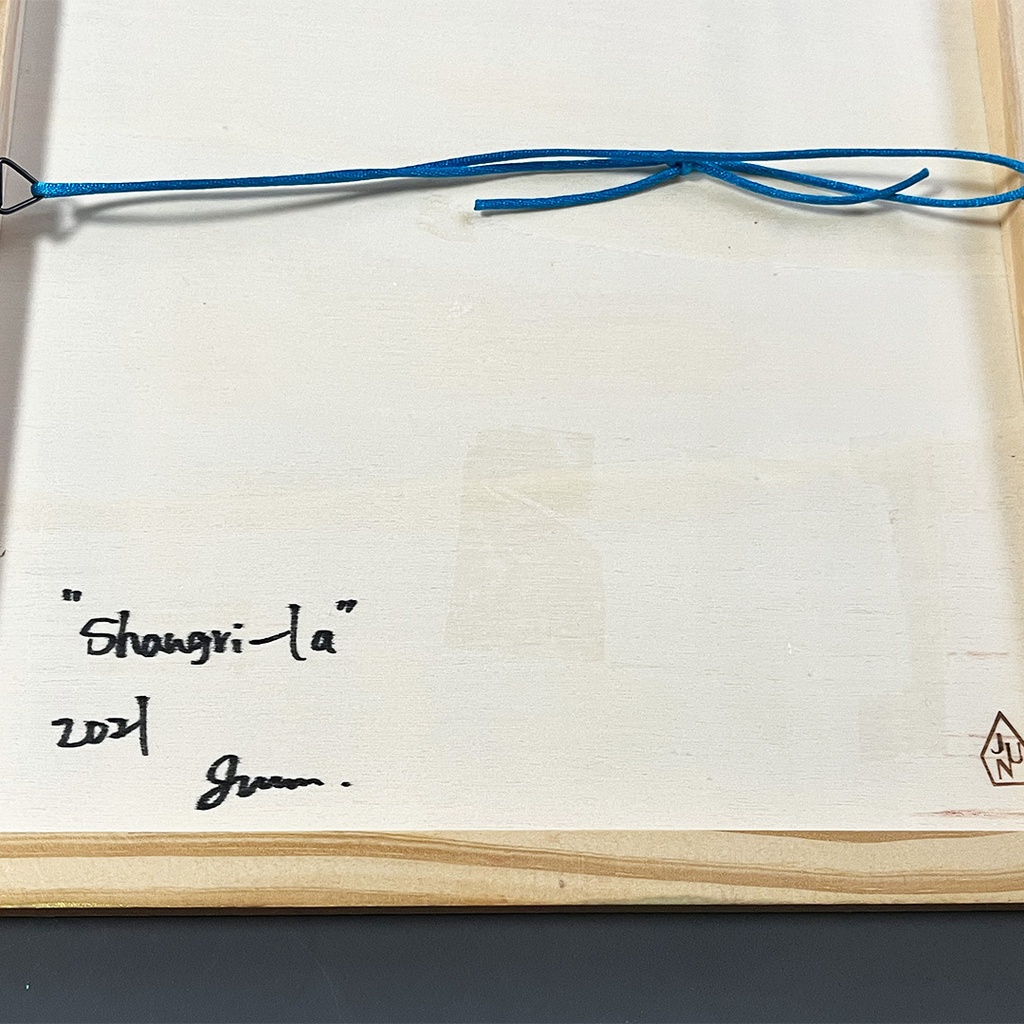 "Shangri-la"
2021
JUN